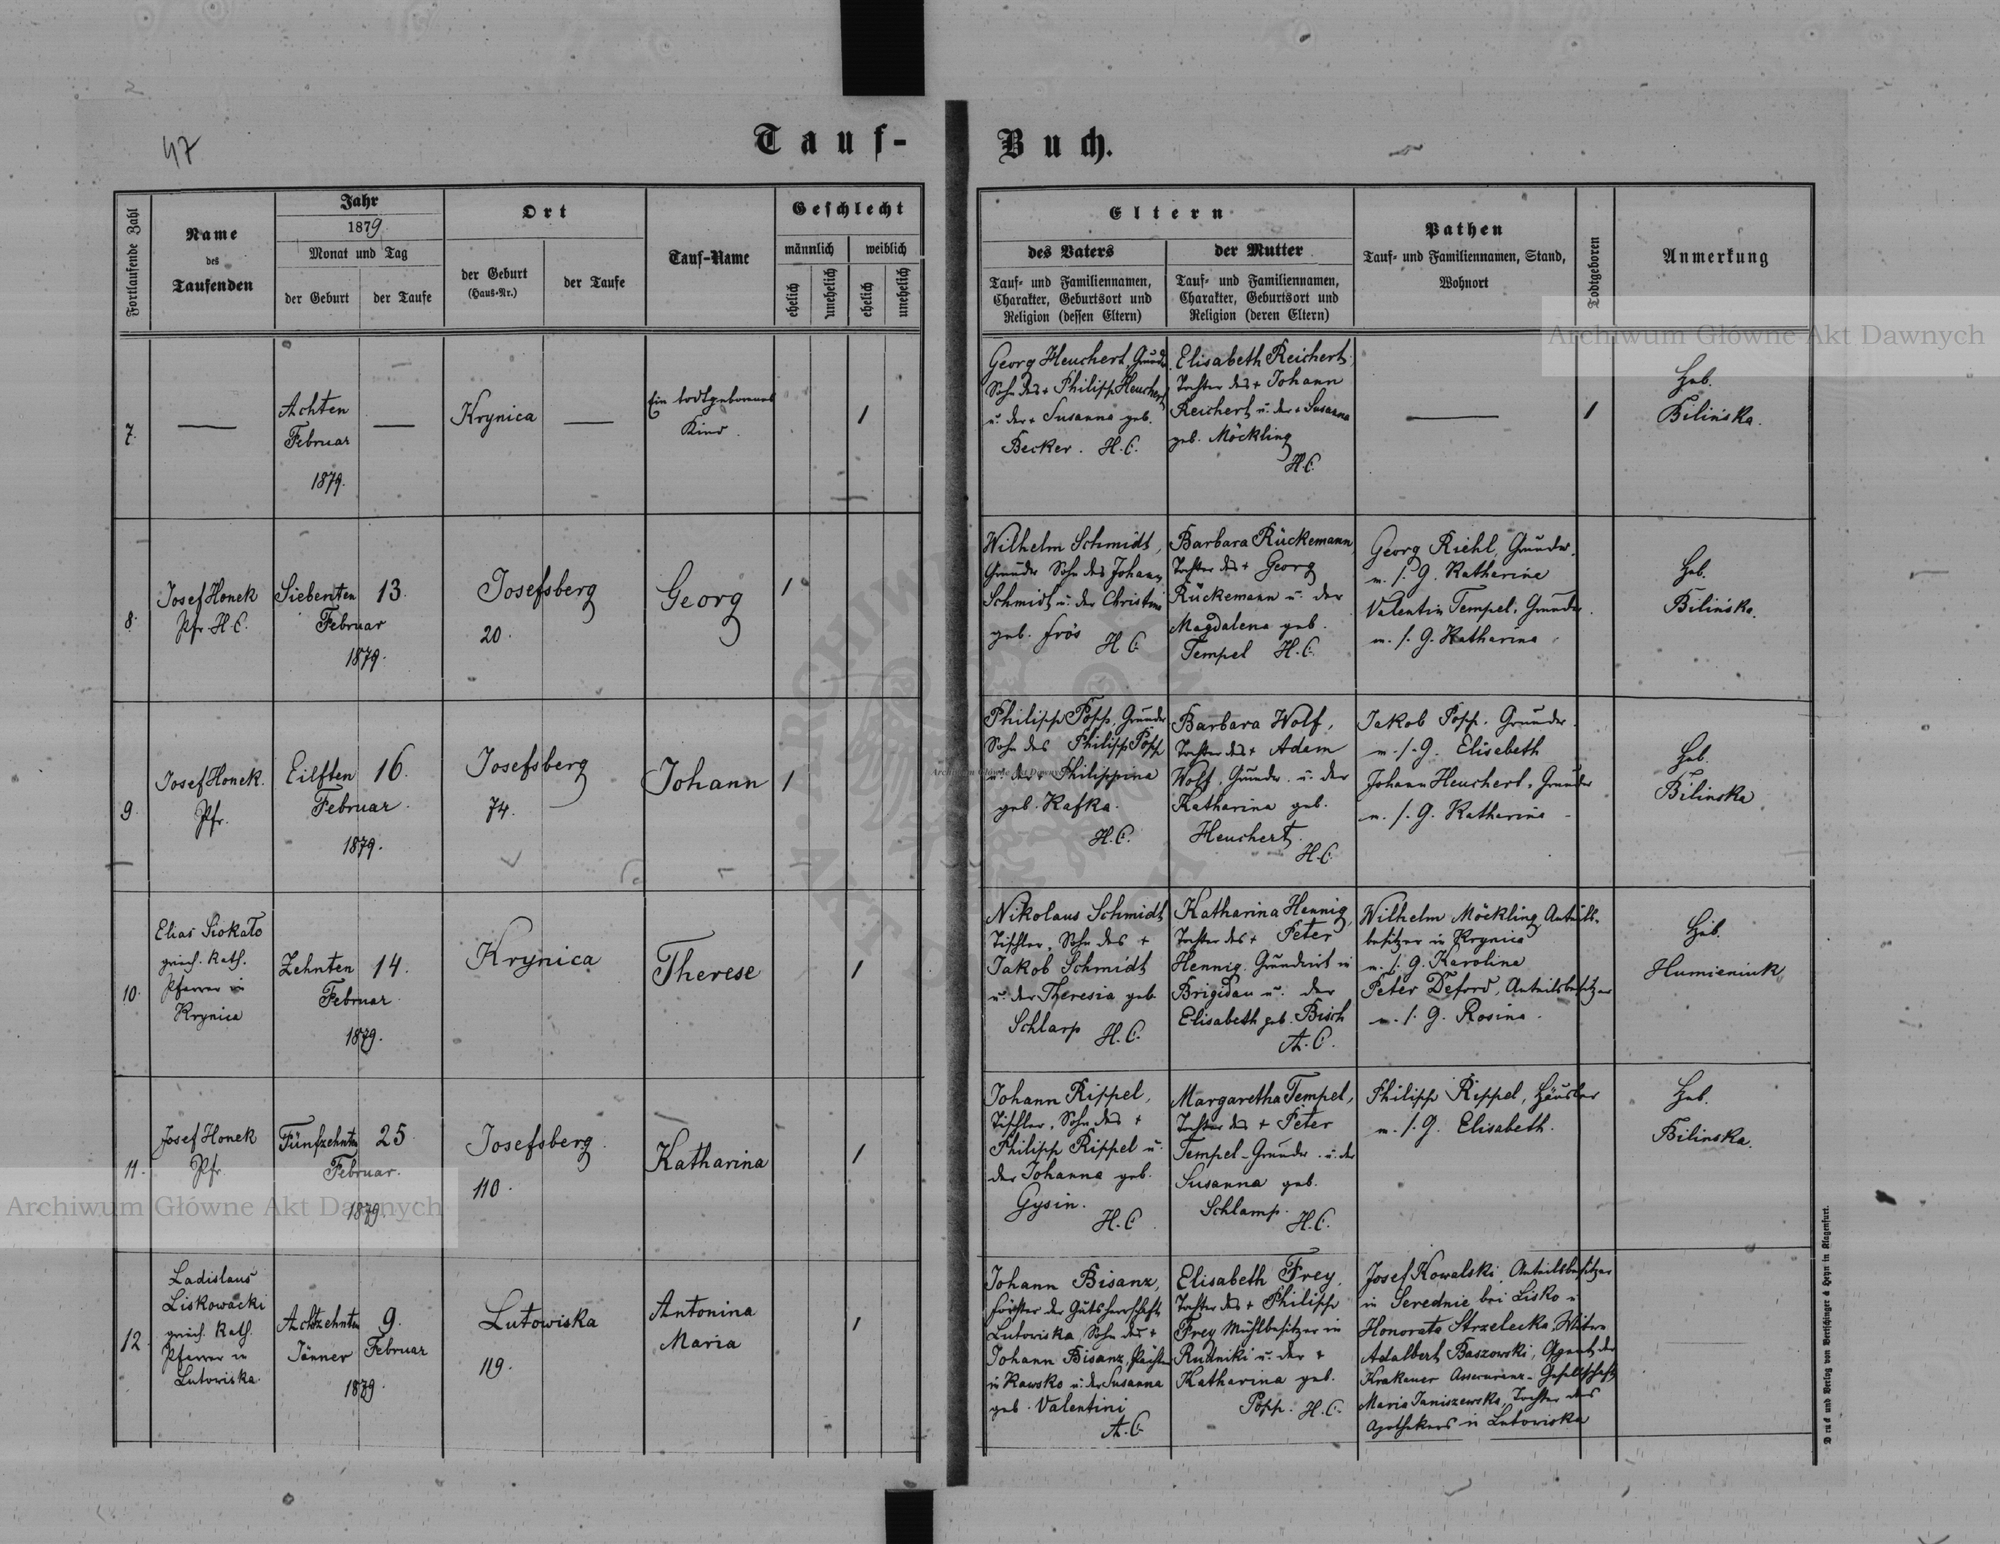 47
Tauf-
Buch.
Fortlaufende Zahl
Name
des
Taufenden
Jahr
1879
Monat und Tag
der Geburt
der Taufe
Ort
der Geburt
(Haus-Nr.)
der Taufe
Tauf-Name
Geschlecht
männlich
weiblich
ehelich
unehelich
ehelich
unehelich
Eltern
des Vaters
Tauf- und Familiennamen,
Charakter, Geburtsort und
Religion (dessen Eltern)
der Mutter
Tauf- und Familiennamen,
Charakter, Geburtsort und
Religion (deren Eltern)
Pathen
Tauf- und Familiennamen, Stand,
Wohnort
Todtgeboren
Anmerkung
7.
Achten
Februar
1879.
Krynica
Ein todtgeborenes
Kind.
1
Georg Heuchert, Grundr.
Sohn des + Philipp Heuchert
u. der + Susanna geb.
Becker. H.C.
Elisabeth Reichert,
Tochter des + Johann
Reichert u. der + Susanna
geb. Möckling
H.C.
1
Heb.
Bilińska.
8.
Josef Honek
Pfr. H.C.
Siebenten
Februar
1879.
13.
Josefsberg
20.
Georg
1
Wilhelm Schmidt,
Grundr. Sohn des Johann
Schmidt u. der Christine
geb. Frös
H.C.
Barbara Rückemann,
Tochter des + Georg
Rückemann u. der
Magdalena geb.
Tempel H.C.
Georg Riehl, Grundr.
u. s. G. Katharina
Valentin Tempel, Grundr.
u. s. G. Katharina
Heb.
Bilińska.
9.
Josef Honek.
Pfr.
Eilften
Februar.
1879.
16.
Josefsberg
74.
Johann
1
Philipp Popp, Grundr
Sohn des Philipp Popp
u. der + Philippina
geb. Kafka.
H.C.
Barbara Wolf,
Tochter des + Adam
Wolf, Grundr. u. der
Katharina geb.
Heuchert.
H.C.
Jakob Popp. Grundr.
u. s. G. Elisabeth
Johann Heuchert, Grundr
u. s. G. Katharina
Heb.
Bilinska
10.
Elias Siokało
griech. kath.
Pfarrer in
Krynica
Zehnten
Februar
1879.
14.
Krynica
Therese
1
Nikolaus Schmidt
Tischler, Sohn des +
Jakob Schmidt
u. der Theresia geb.
Schlarp H.C.
Katharina Hennig,
Tochter des + Peter
Hennig, Grundwirt in
Brigidau u. der
Elisabeth geb. Bisch
A.C.
Wilhelm Möckling, Anteils-
besitzer in Krynica
u. s. G. Karolina
Peter Deford, Anteilsbesitzer
u. s. G. Rosina.
Heb.
Humieniuk
11.
Josef Honek
Pfr.
Fünfzehnten
Februar.
1879.
25.
Josefsberg.
110.
Katharina
1
Johann Rippel,
Tischler, Sohn des +
Philipp Rippel u.
der Johanna geb.
Gysin.
H.C.
Margaretha Tempel,
Tochter des + Peter
Tempel, Grundr. u. der
Susanna geb.
Schlamp.
H.C.
Philipp Rippel, Häusler
u. s. G. Elisabeth.
Heb.
Bilinska.
12.
Ladislaus
Liskowacki
griech. kath.
Pfarrer in
Lutowiska.
Achtzehnten
Jänner
1879.
9.
Februar
Lutowiska
119.
Antonina
Maria
1
Johann Bisanz,
Förster der Gutsherrschaft
Lutowiska, Sohn des +
Johann Bisanz, Pächter
in Kawsko u. der Susanna
geb. Valentini
A.C.
Elisabeth Frey,
Tochter des + Philipp
Frey Mühlbesitzer in
Rudniki u. der +
Katharina geb.
Popp. H.C.
Josef Kowalski, Anteilsbesitzer
in Serednie bei Lisko u.
Honorata Strzelecka, Witwe
Adalbert Baszowski, Agent der
Krakauer Assecuranz-Gesellschaft
Maria Janiszewska, Tochter des
Apothekers in Lutowiska
Druck und Verlag von Bertschinger & Heyn in Klagenfurt.
Archiwum Główne Akt Dawnych
Archiwum Główne Akt Dawnych
Archiwum Główne Akt Dawnych